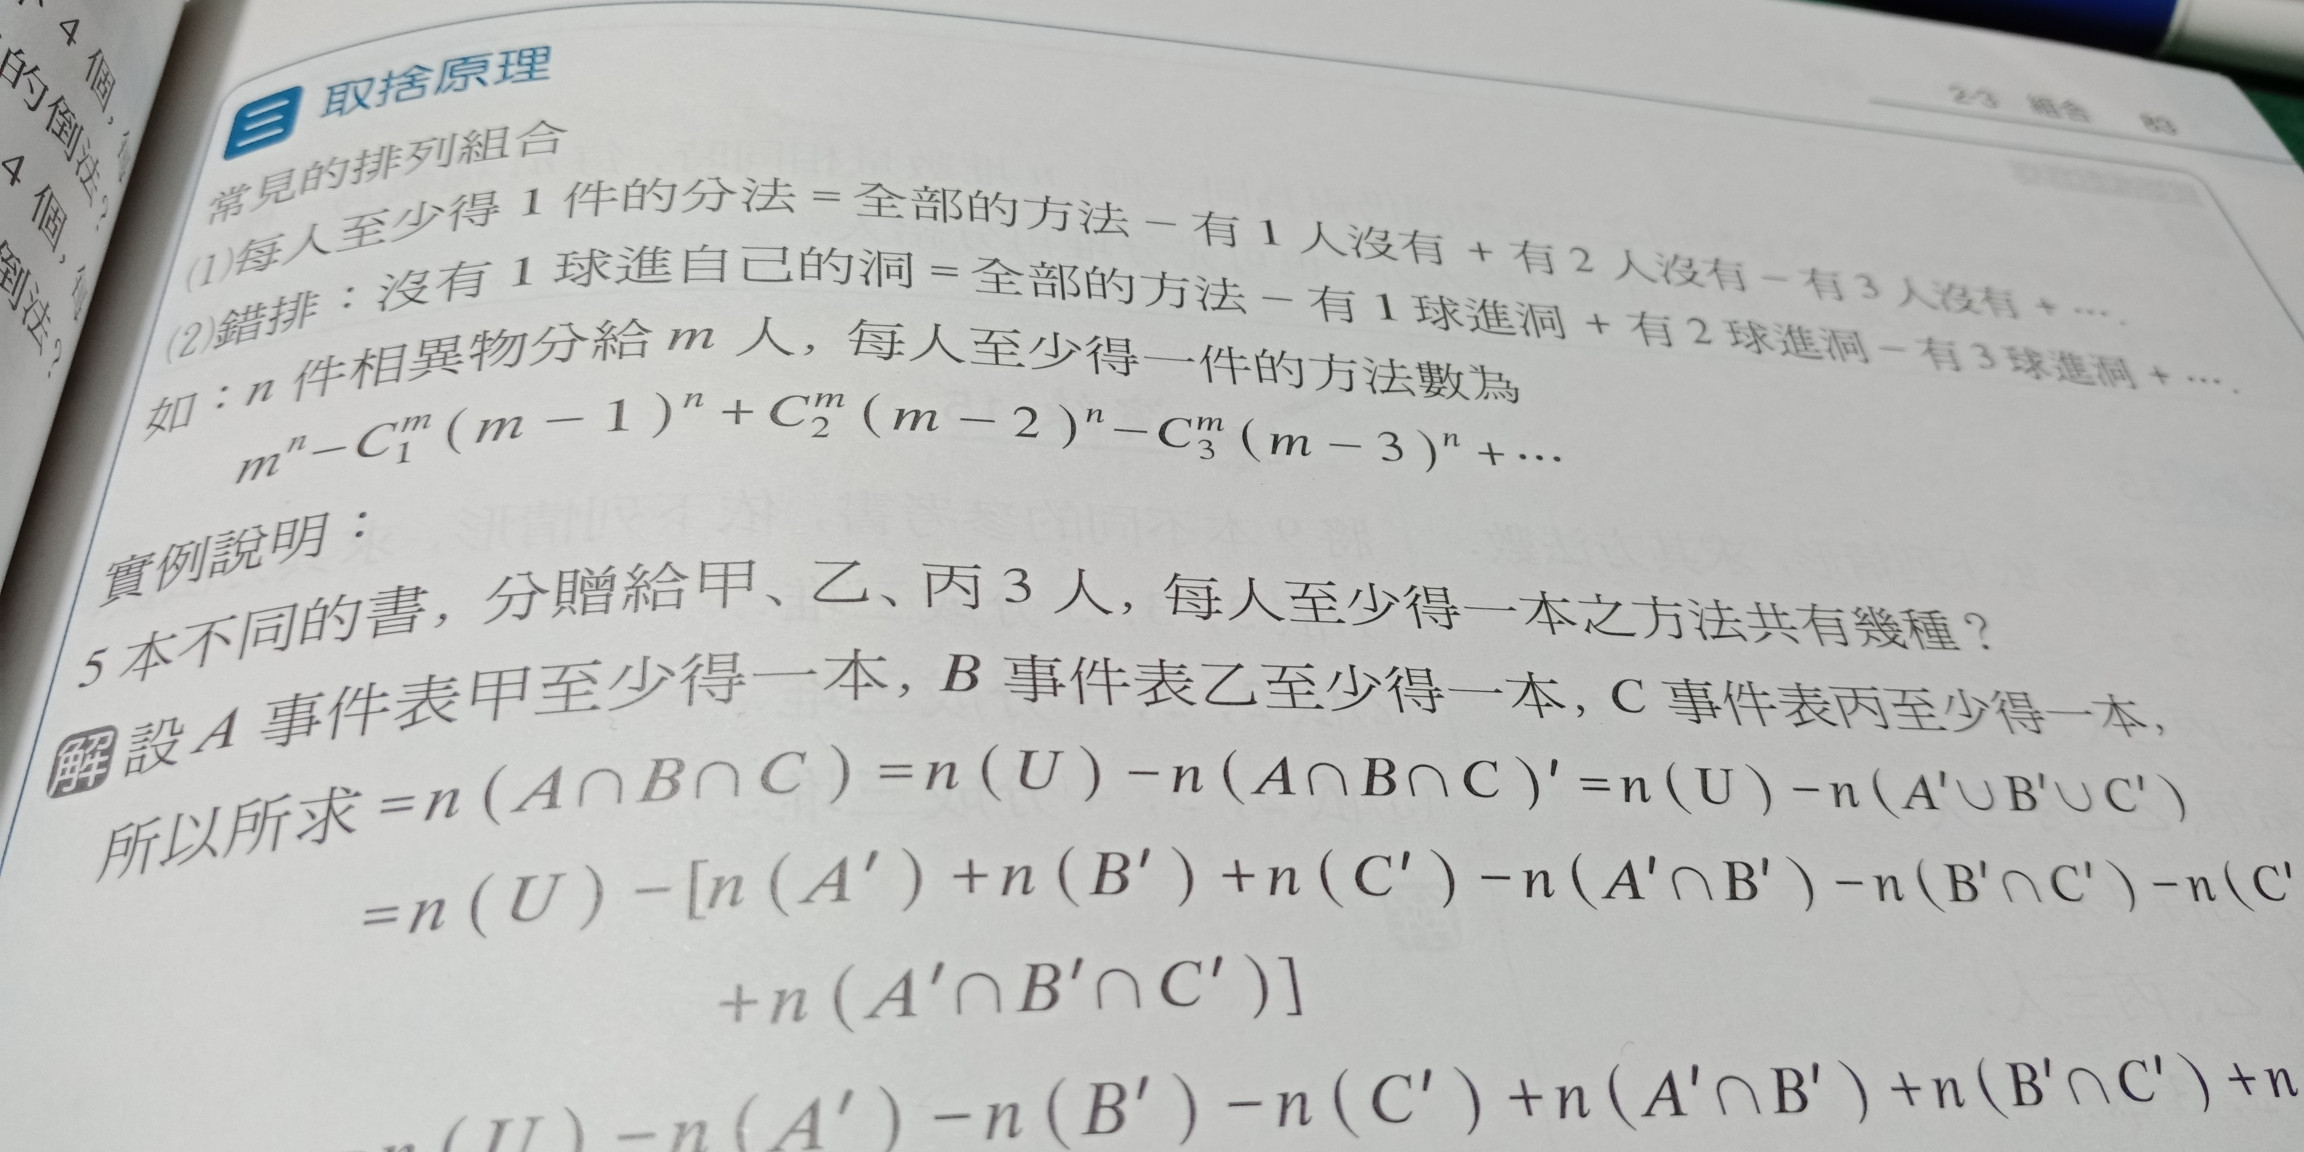 2-3 組合 83
三 取捨原理
常見的排列組合
(1)每人至少得 1 件的分法 = 全部的方法 − 有 1 人沒有 + 有 2 人沒有 − 有 3 人沒有 + ….
(2)錯排：沒有 1 球進自己的洞 = 全部的方法 − 有 1 球進洞 + 有 2 球進洞 − 有 3 球進洞 + ….
如：n 件相異物分給 m 人，每人至少得一件的方法數為
mⁿ−C₁ᵐ(m−1)ⁿ+C₂ᵐ(m−2)ⁿ−C₃ᵐ(m−3)ⁿ+⋯
實例說明：
5 本不同的書，分贈給甲、乙、丙 3 人，每人至少得一本之方法共有幾種？
解 設 A 事件表甲至少得一本，B 事件表乙至少得一本，C 事件表丙至少得一本，
所以所求=n(A∩B∩C)=n(U)−n(A∩B∩C)'=n(U)−n(A'∪B'∪C')
=n(U)−[n(A')+n(B')+n(C')−n(A'∩B')−n(B'∩C')−n(C'
+n(A'∩B'∩C')]
n(U)−n(A')−n(B')−n(C')+n(A'∩B')+n(B'∩C')+n
4 個，
的倒法？
4 個，
倒法？